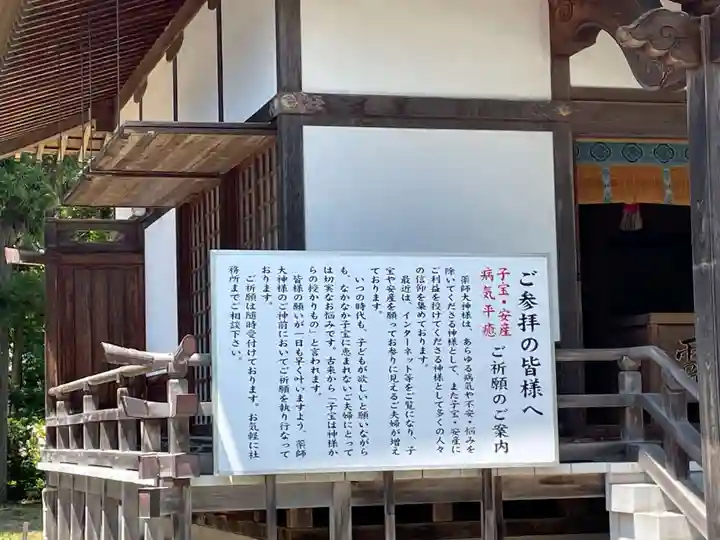 ご参拝の皆様へ
子宝・安産
病気平癒
ご祈願のご案内
薬師大神様は、あらゆる病気や不安・悩みを
除いてくださる神様として、また子宝・安産に
ご利益を授けてくださる神様として多くの人々
の信仰を集めております。
最近は、インターネット等をご覧になり、子
宝や安産を願ってお参りに見えるご夫婦が増え
ております。
いつの時代も、子どもが欲しいと願いながら
も、なかなか子宝に恵まれないご夫婦にとって
は切実なお悩みです。古来から「子宝は神様か
らの授かりもの」と言われます。
皆様の願いが一日も早く叶いますよう、薬師
大神様のご神前においてご祈願を執り行なって
おります。
ご祈願は随時受付けております。お気軽に社
務所までご相談下さい。